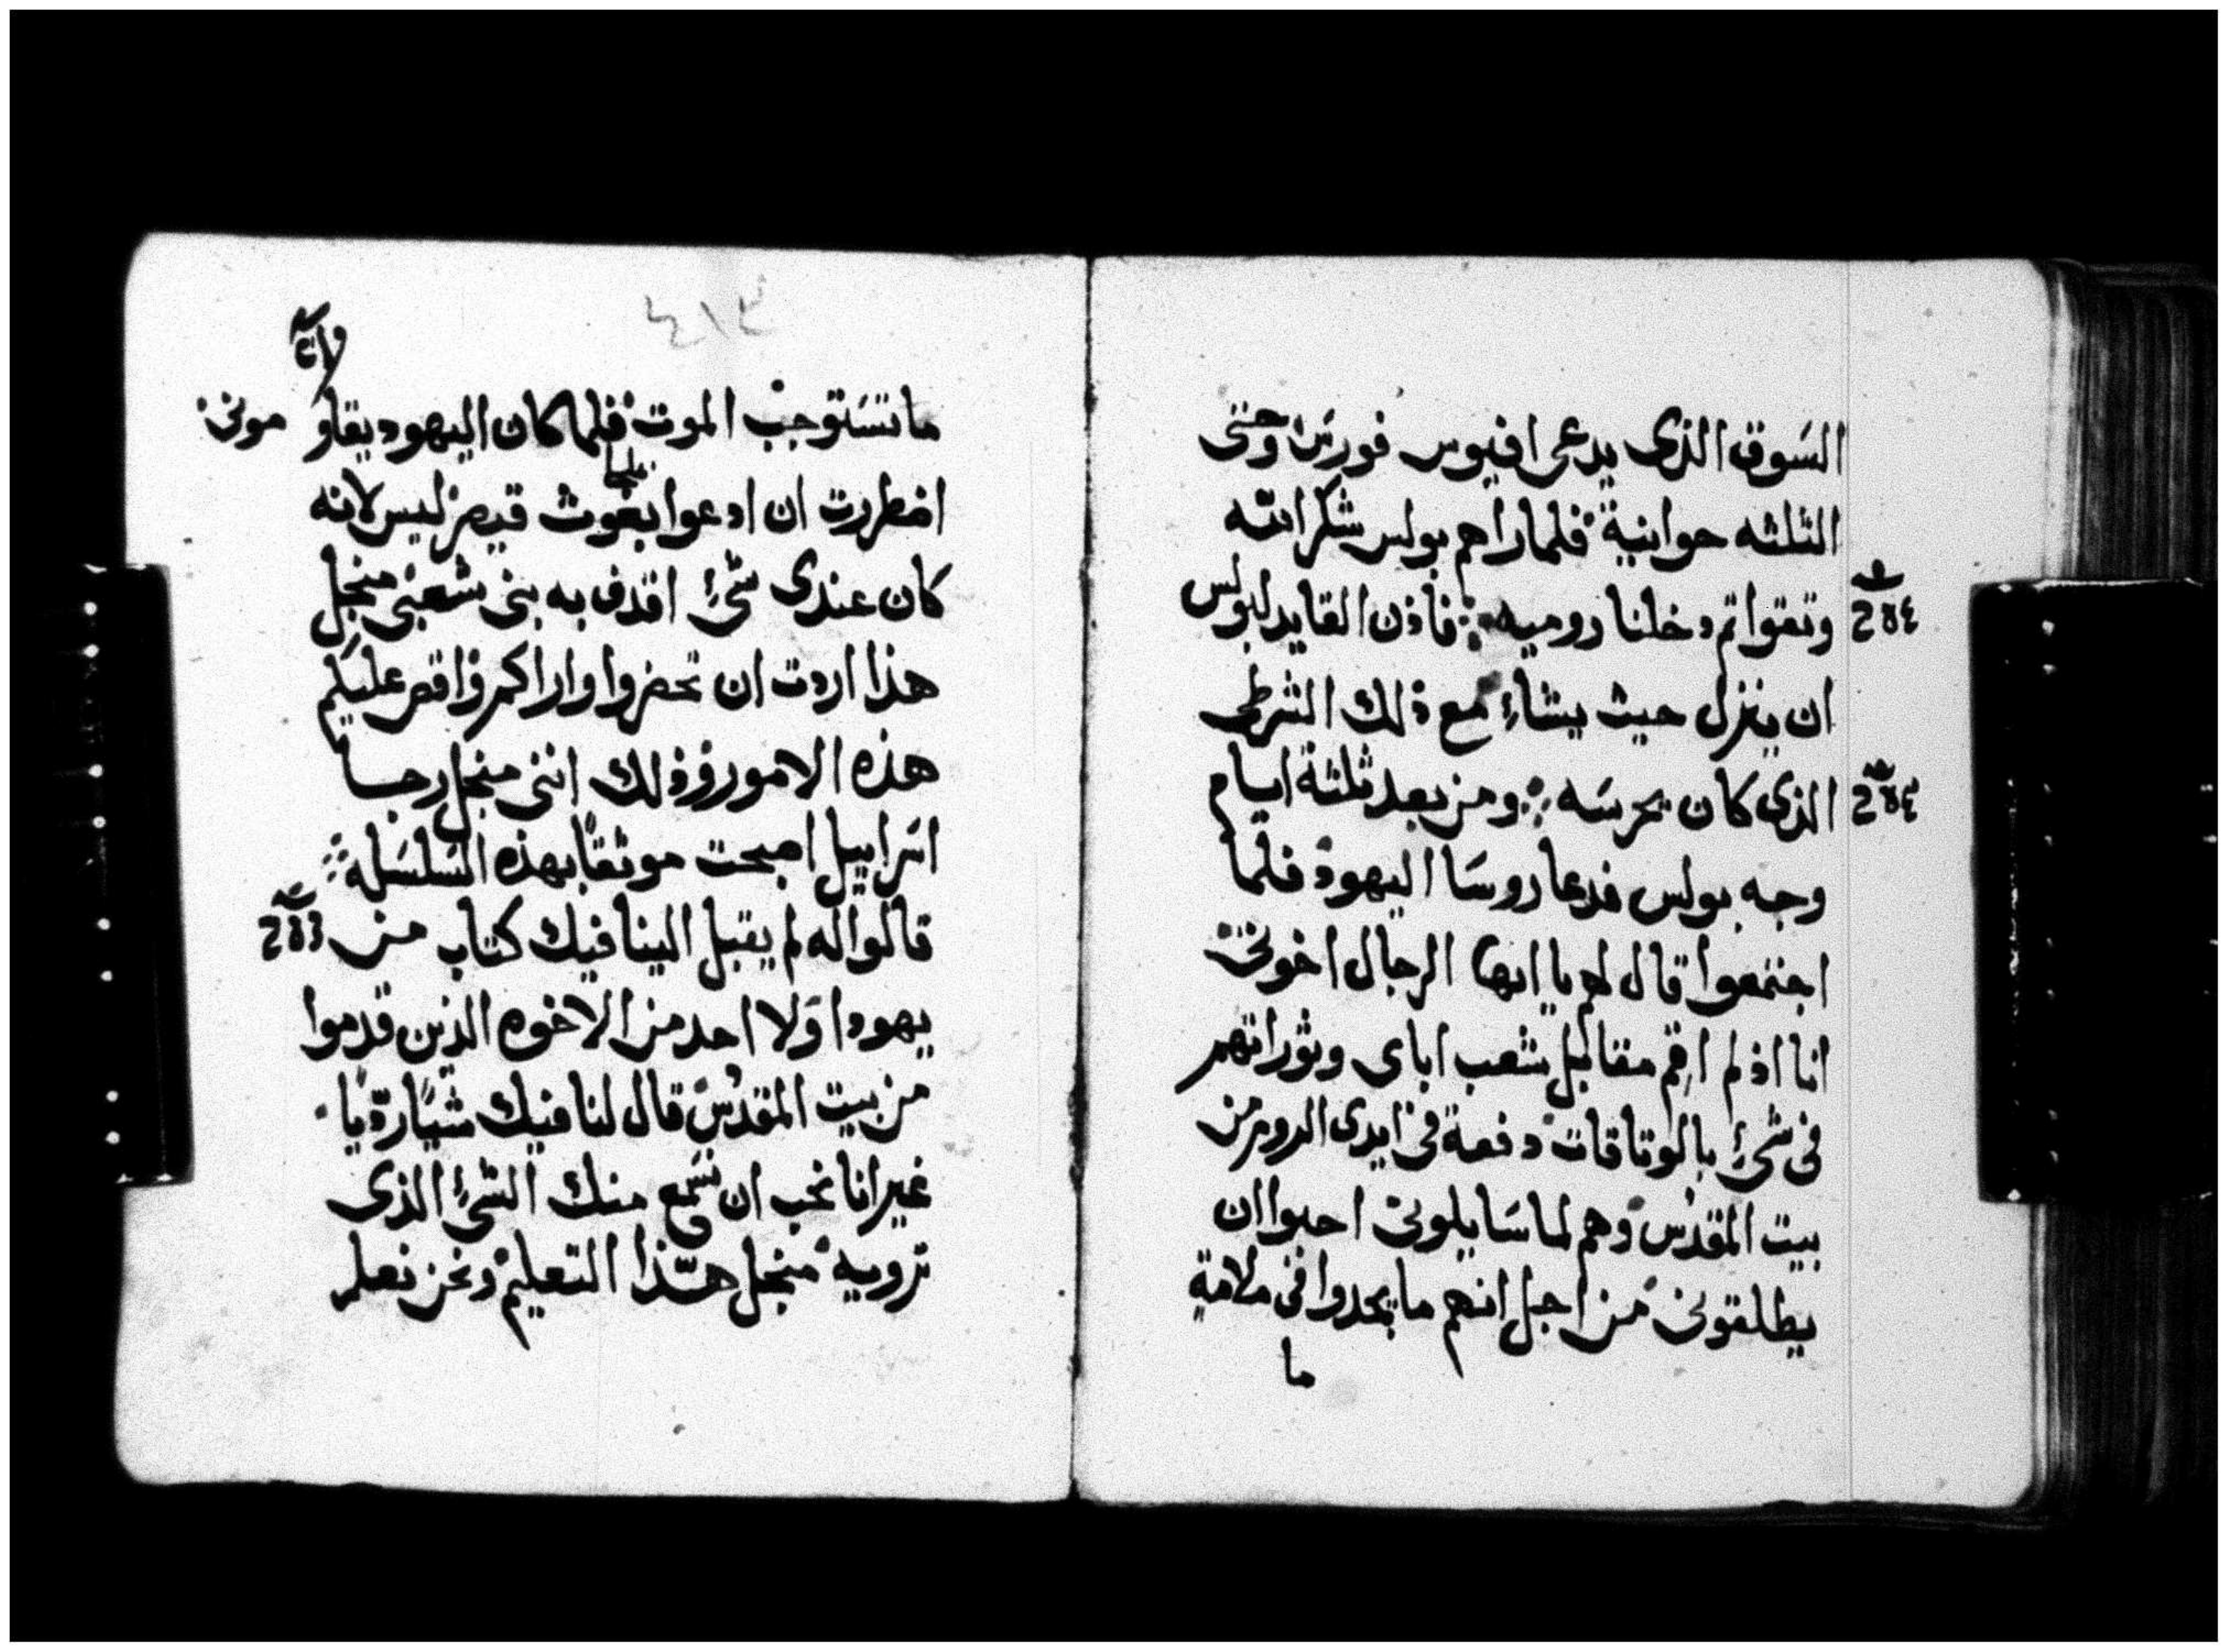 السوق الذى يدعى افيوس فورس وحتى
الثلثه حوانية فلما راهم بولس شكر الله
وتقوا ثم دخلنا روميه ܀ فاذن القايد لبولس
ان ينزل حيث يشاء مع ذلك الشرطى
الذى كان يحرسه ܀ ومن بعد ثلثة ايام
وجه بولس فدعا روسا اليهود فلما
اجتمعوا قال لهم يا ايها الرجال اخوتى
انا اذ لم اقم مقابل شعب اباى وتوراتهم
فى شئ بالوتاقات دفعة فى ايدى الروم من
بيت المقدس وهم لما سايلونى احبوا ان
يطلقونى من اجل انهم ما يجدوا فى ملامة
ما
٤١٣
ما تستوجب الموت فلما كان اليهود يقاومونى
اضطررت ان ادعوا بغوث قيصر ليس لانه
كان عندى شئ اقذف به بنى شعبى منجل
هذا اردت ان تحضروا واراكم واقص عليكم
هذه الامور وذلك اننى منجل رجا
اسراييل اصبحت موثقا بهذه السلسله ܀
قالوا له لم يقبل الينا فيك كتاب من
يهودا ولا احد من الاخوه الذين قدموا
من بيت المقدس قال لنا فيك شيا رديا
غير انا نحب ان نسمع منك الشئ الذى
ترويه منجل هذا التعليم ونحن نعلم